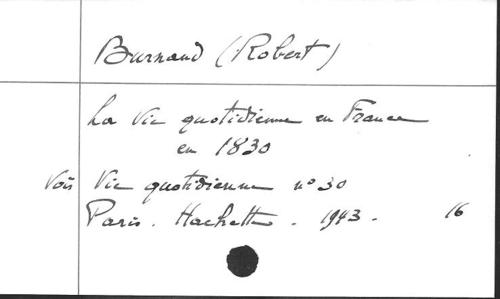 Burnand (Robert)
La Vie quotidienne en France
en 1830
Voir Vie quotidienne n° 30
Paris. Hachette. 1943. 16